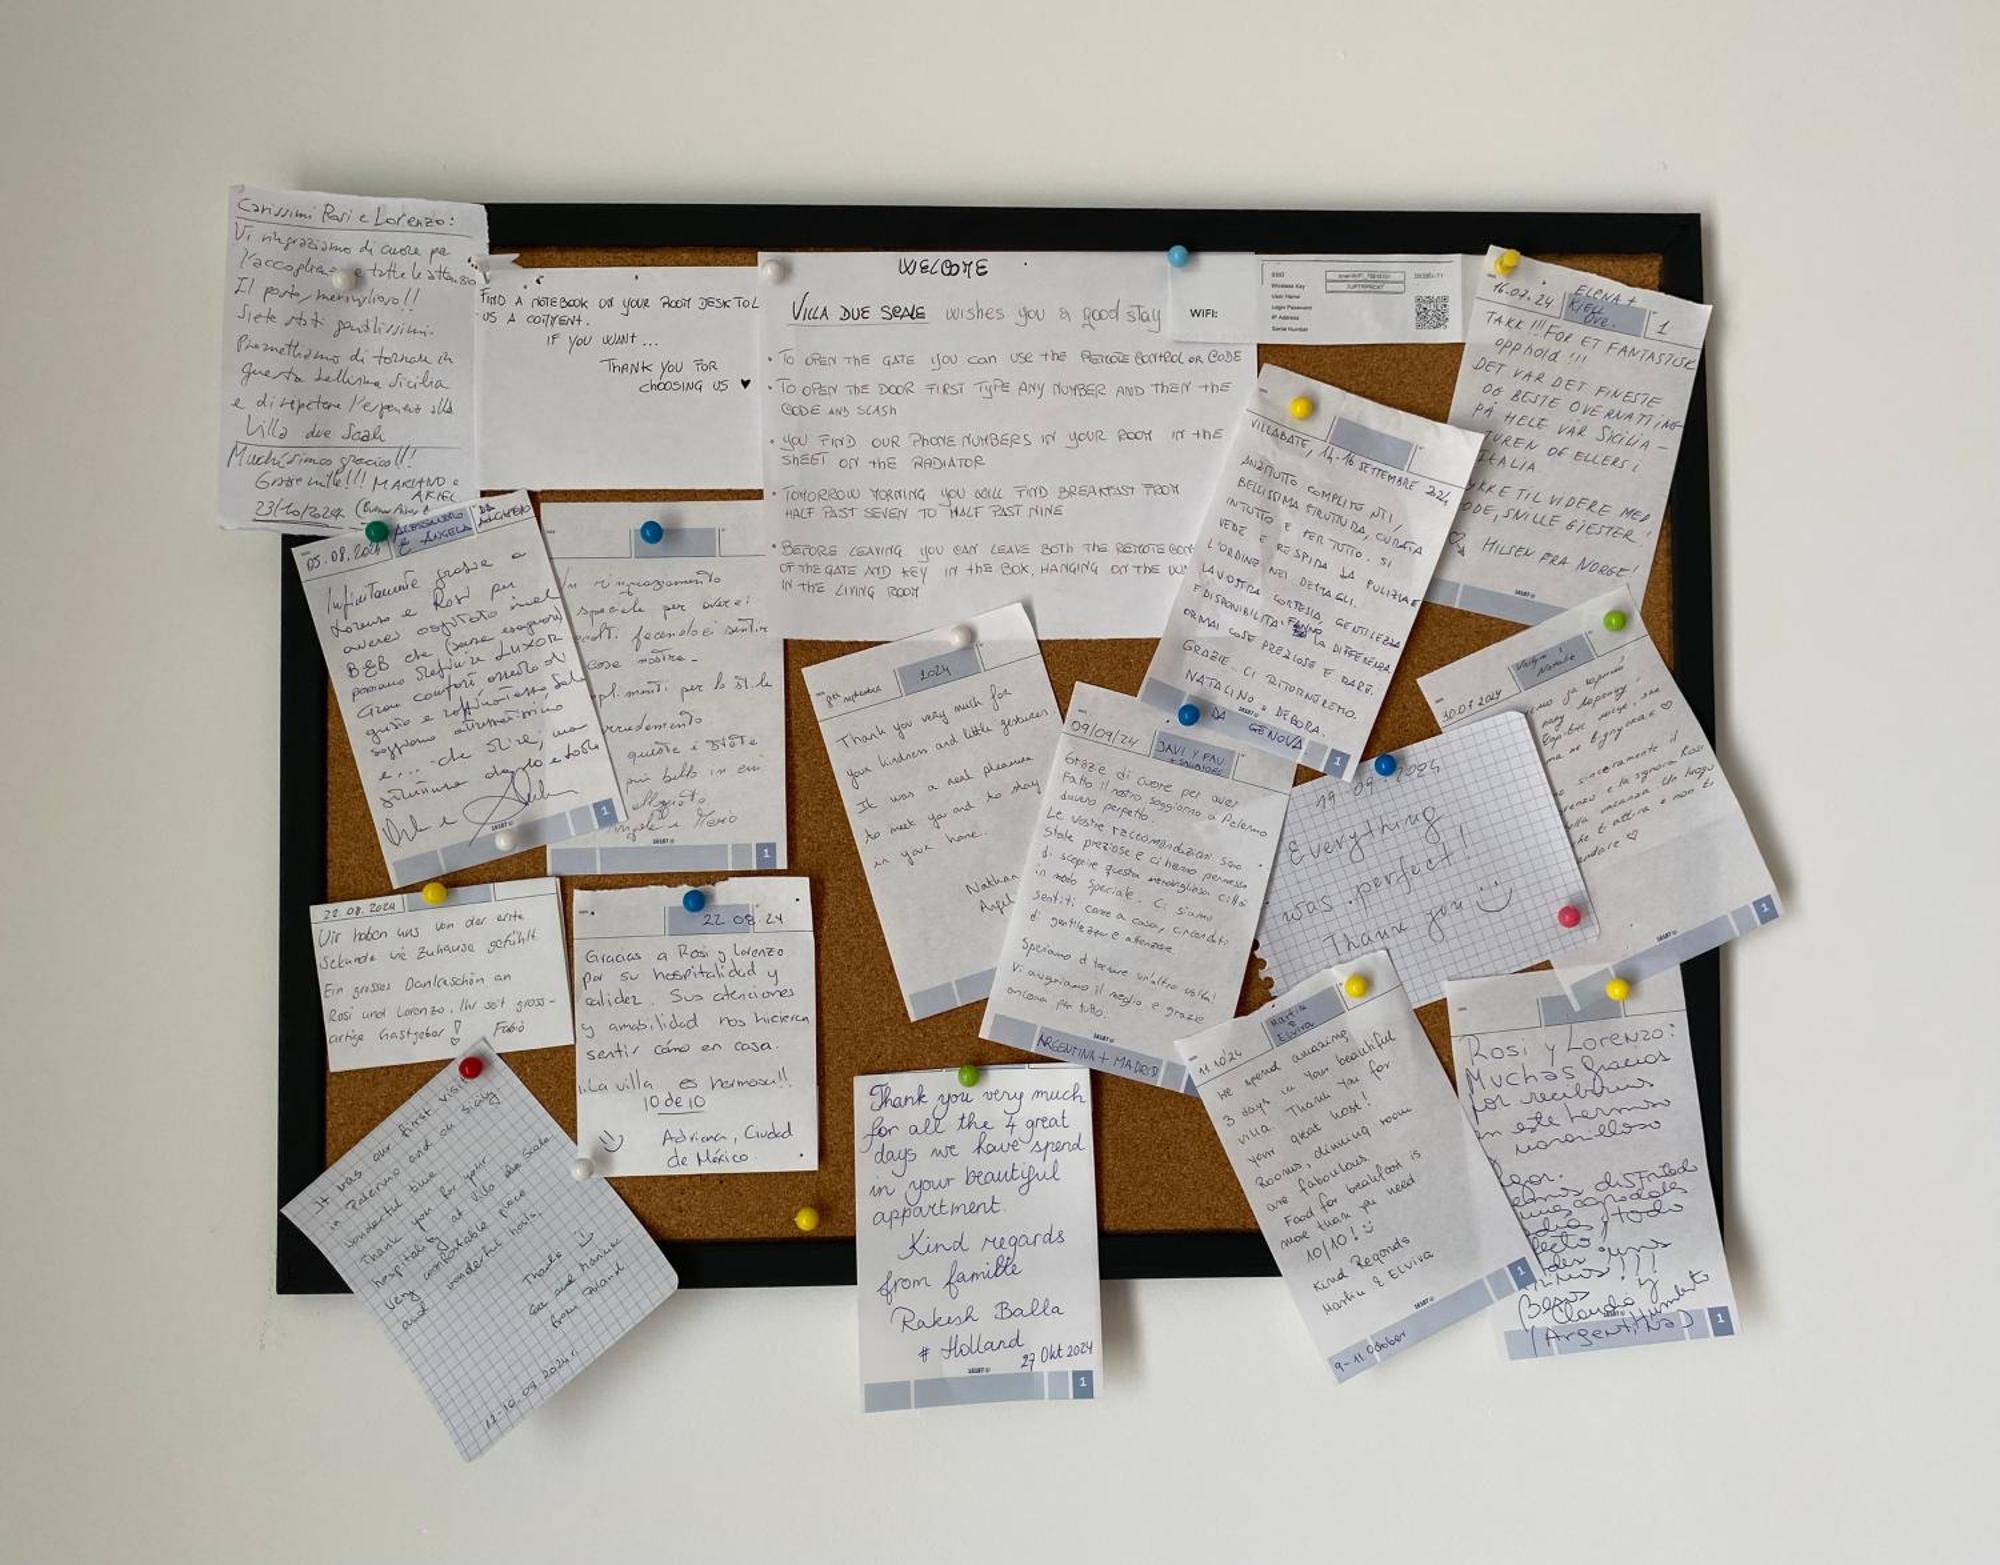 Carissimi Rosi e Lorenzo:
Vi ringraziamo di cuore per
l'accoglienza e tutte le attenzioni
Il posto, meraviglioso!!
Siete stati gentilissimi.
Promettiamo di tornare in
questa bellissima Sicilia
e di ripetere l'esperienza alla
Villa due Scale
Muchísimas gracias!!!
Grazie mille!!! MARIANO e
ARIEL
23/10/2024.
FIND A NOTEBOOK ON YOUR ROOM DESK TO L
US A COMMENT.
IF YOU WANT...
THANK YOU FOR
CHOOSING US ♥
WELCOME
VILLA DUE SCALE wishes you a good stay
• TO OPEN THE GATE YOU CAN USE THE REMOTE CONTROL OR CODE
• TO OPEN THE DOOR FIRST TYPE ANY NUMBER AND THEN THE
CODE AND SLASH
• YOU FIND OUR PHONE NUMBERS IN YOUR ROOM IN THE
SHEET ON THE RADIATOR
• TOMORROW MORNING YOU WILL FIND BREAKFAST FROM
HALF PAST SEVEN TO HALF PAST NINE
• BEFORE LEAVING YOU CAN LEAVE BOTH THE REMOTE CON
OF THE GATE AND KEY IN THE BOX, HANGING ON THE
IN THE LIVING ROOM
WIFI:
SSID
Wireless Key
User Name
Login Password
IP Address
Serial Number
16.07.24
ELENA +
KJELL
OVE.
1
TAKK!!! FOR ET FANTASTISK
opphold!!!
DET VAR DET FINESTE
OG BESTE OVERNATTING
PÅ HELE VÅR SICILIA –
TUREN OG ELLERS I
ITALIA.
LYKKE TIL VIDERE MED
GODE, SNILLE GJESTER!
HILSEN FRA NORGE!
VILLABATE, 14-16 SETTEMBRE 2024
ANZITUTTO COMPLIMENTI,
BELLISSIMA STRUTTURA, CURATA
IN TUTTO E PER TUTTO. SI
VEDE E RESPIRA LA PULIZIA E
L'ORDINE NEI DETTAGLI.
LA VOSTRA CORTESIA, GENTILEZZA
E DISPONIBILITA' FANNO LA DIFFERENZA,
ORMAI COSE PREZIOSE E RARE.
GRAZIE.. CI RITORNEREMO.
NATALINO e DEBORA.
DA GENOVA
1
05.08.2024
ALESSANDRO
E ANGELA
Infinitamente grazie a
Lorenzo e Rosi per
averci ospitato in un
B&B che (senza esagerare)
possiamo definire LUXOR
Gran comfort arredo di
gusto e raffinatezza,
e.... che dire,
1
Un ringraziamento
speciale per averci
accolti facendoci sentire
a casa nostra –
complimenti per lo stile
arredamento
questa è stata
più bella in cui
alloggiato
Angela e Mario
1
8th september
2024
Thank you very much for
your kindness and little gestures
It was a real pleasure
to meet you and to stay
in your home.
Nathan
Angel
09/09/24
JAVI Y PAU
Grazie, di cuore per aver
fatto il nostro soggiorno a Palermo
davvero perfetto.
Le vostre raccomandazioni sono
state preziose e ci hanno permesso
di scoprire questa meravigliosa città
in modo speciale. Ci siamo
sentiti come a casa, circondati
di gentilezza e attenzione.
Speriamo di tornare un'altra volta!
Vi auguriamo il meglio e grazie
ancora per tutto.
ARGENTINA + MADRID
19 09. 2024
Everything
was perfect!
Thank you
30.07.2024
sinceramente il
e la signora Rosi
vacanza. Un luogo
ti attira e non ti
♡
1
22.08.2024
Wir haben uns von der erste
Sekunde wie Zuhause gefühlt
Ein grosses Dankeschön an
Rosi und Lorenzo. Ihr seit gross-
artige Gastgeber! Fabio
22 08. 24
Gracias a Rosi y Lorenzo
por su hospitalidad y
calidez. Sus atenciones
y amabilidad nos hicieron
sentir cómo en casa.
¡¡La villa es hermosa!!
10 de 10
Adriana, Ciudad
de México.
It was our first visit
in Palermo and on Sicily
wonderful time
Thank you for your
hospitality at Villa due Scale
Very comfortable place
and wonderful hosts.
Thanks
from Poland
Thank you very much
for all the 4 great
days we have spend
in your beautiful
appartment.
Kind regards
from familie
Rakesh Balla
# Holland
27 Okt 2024
1
11.10'24
Martin
&
Elvira
We spend amazing
3 days in your beautiful
villa. Thank you for
your great host!
Rooms, dinning room
are fabulous.
Food for breakfast is
more than you need
10/10!
Kind Regards
Martin & Elvira
9-11 October
1
Rosi y Lorenzo:
Muchas Gracias
por recibirnos
en este hermoso
y maravilloso
lugar.
Hemos disfrutado
todo
Besos
Claudia y
Humberto
(Argentina)
1